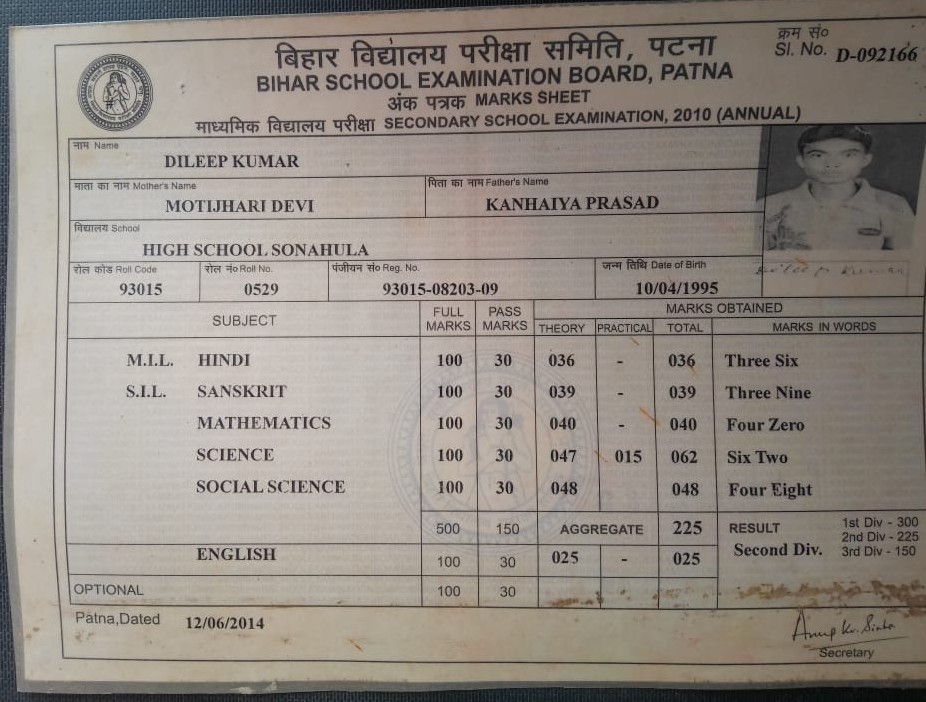 क्रम सं०
Sl. No. D-092166
बिहार विद्यालय परीक्षा समिति, पटना
BIHAR SCHOOL EXAMINATION BOARD, PATNA
अंक पत्रक MARKS SHEET
माध्यमिक विद्यालय परीक्षा SECONDARY SCHOOL EXAMINATION, 2010 (ANNUAL)
नाम Name
DILEEP KUMAR
माता का नाम Mother's Name पिता का नाम Father's Name
MOTIJHARI DEVI KANHAIYA PRASAD
विद्यालय School
HIGH SCHOOL SONAHULA
रोल कोड Roll Code रोल नं० Roll No. पंजीयन सं० Reg. No. जन्म तिथि Date of Birth
93015 0529 93015-08203-09 10/04/1995
Dileep Kumar
SUBJECT FULL MARKS PASS MARKS MARKS OBTAINED
THEORY PRACTICAL TOTAL MARKS IN WORDS
M.I.L. HINDI 100 30 036 - 036 Three Six
S.I.L. SANSKRIT 100 30 039 - 039 Three Nine
MATHEMATICS 100 30 040 - 040 Four Zero
SCIENCE 100 30 047 015 062 Six Two
SOCIAL SCIENCE 100 30 048 048 Four Eight
500 150 AGGREGATE 225 RESULT 1st Div - 300
2nd Div - 225
ENGLISH 100 30 025 - 025 Second Div. 3rd Div - 150
OPTIONAL 100 30
Patna,Dated 12/06/2014
Anup Kr. Sinha
Secretary